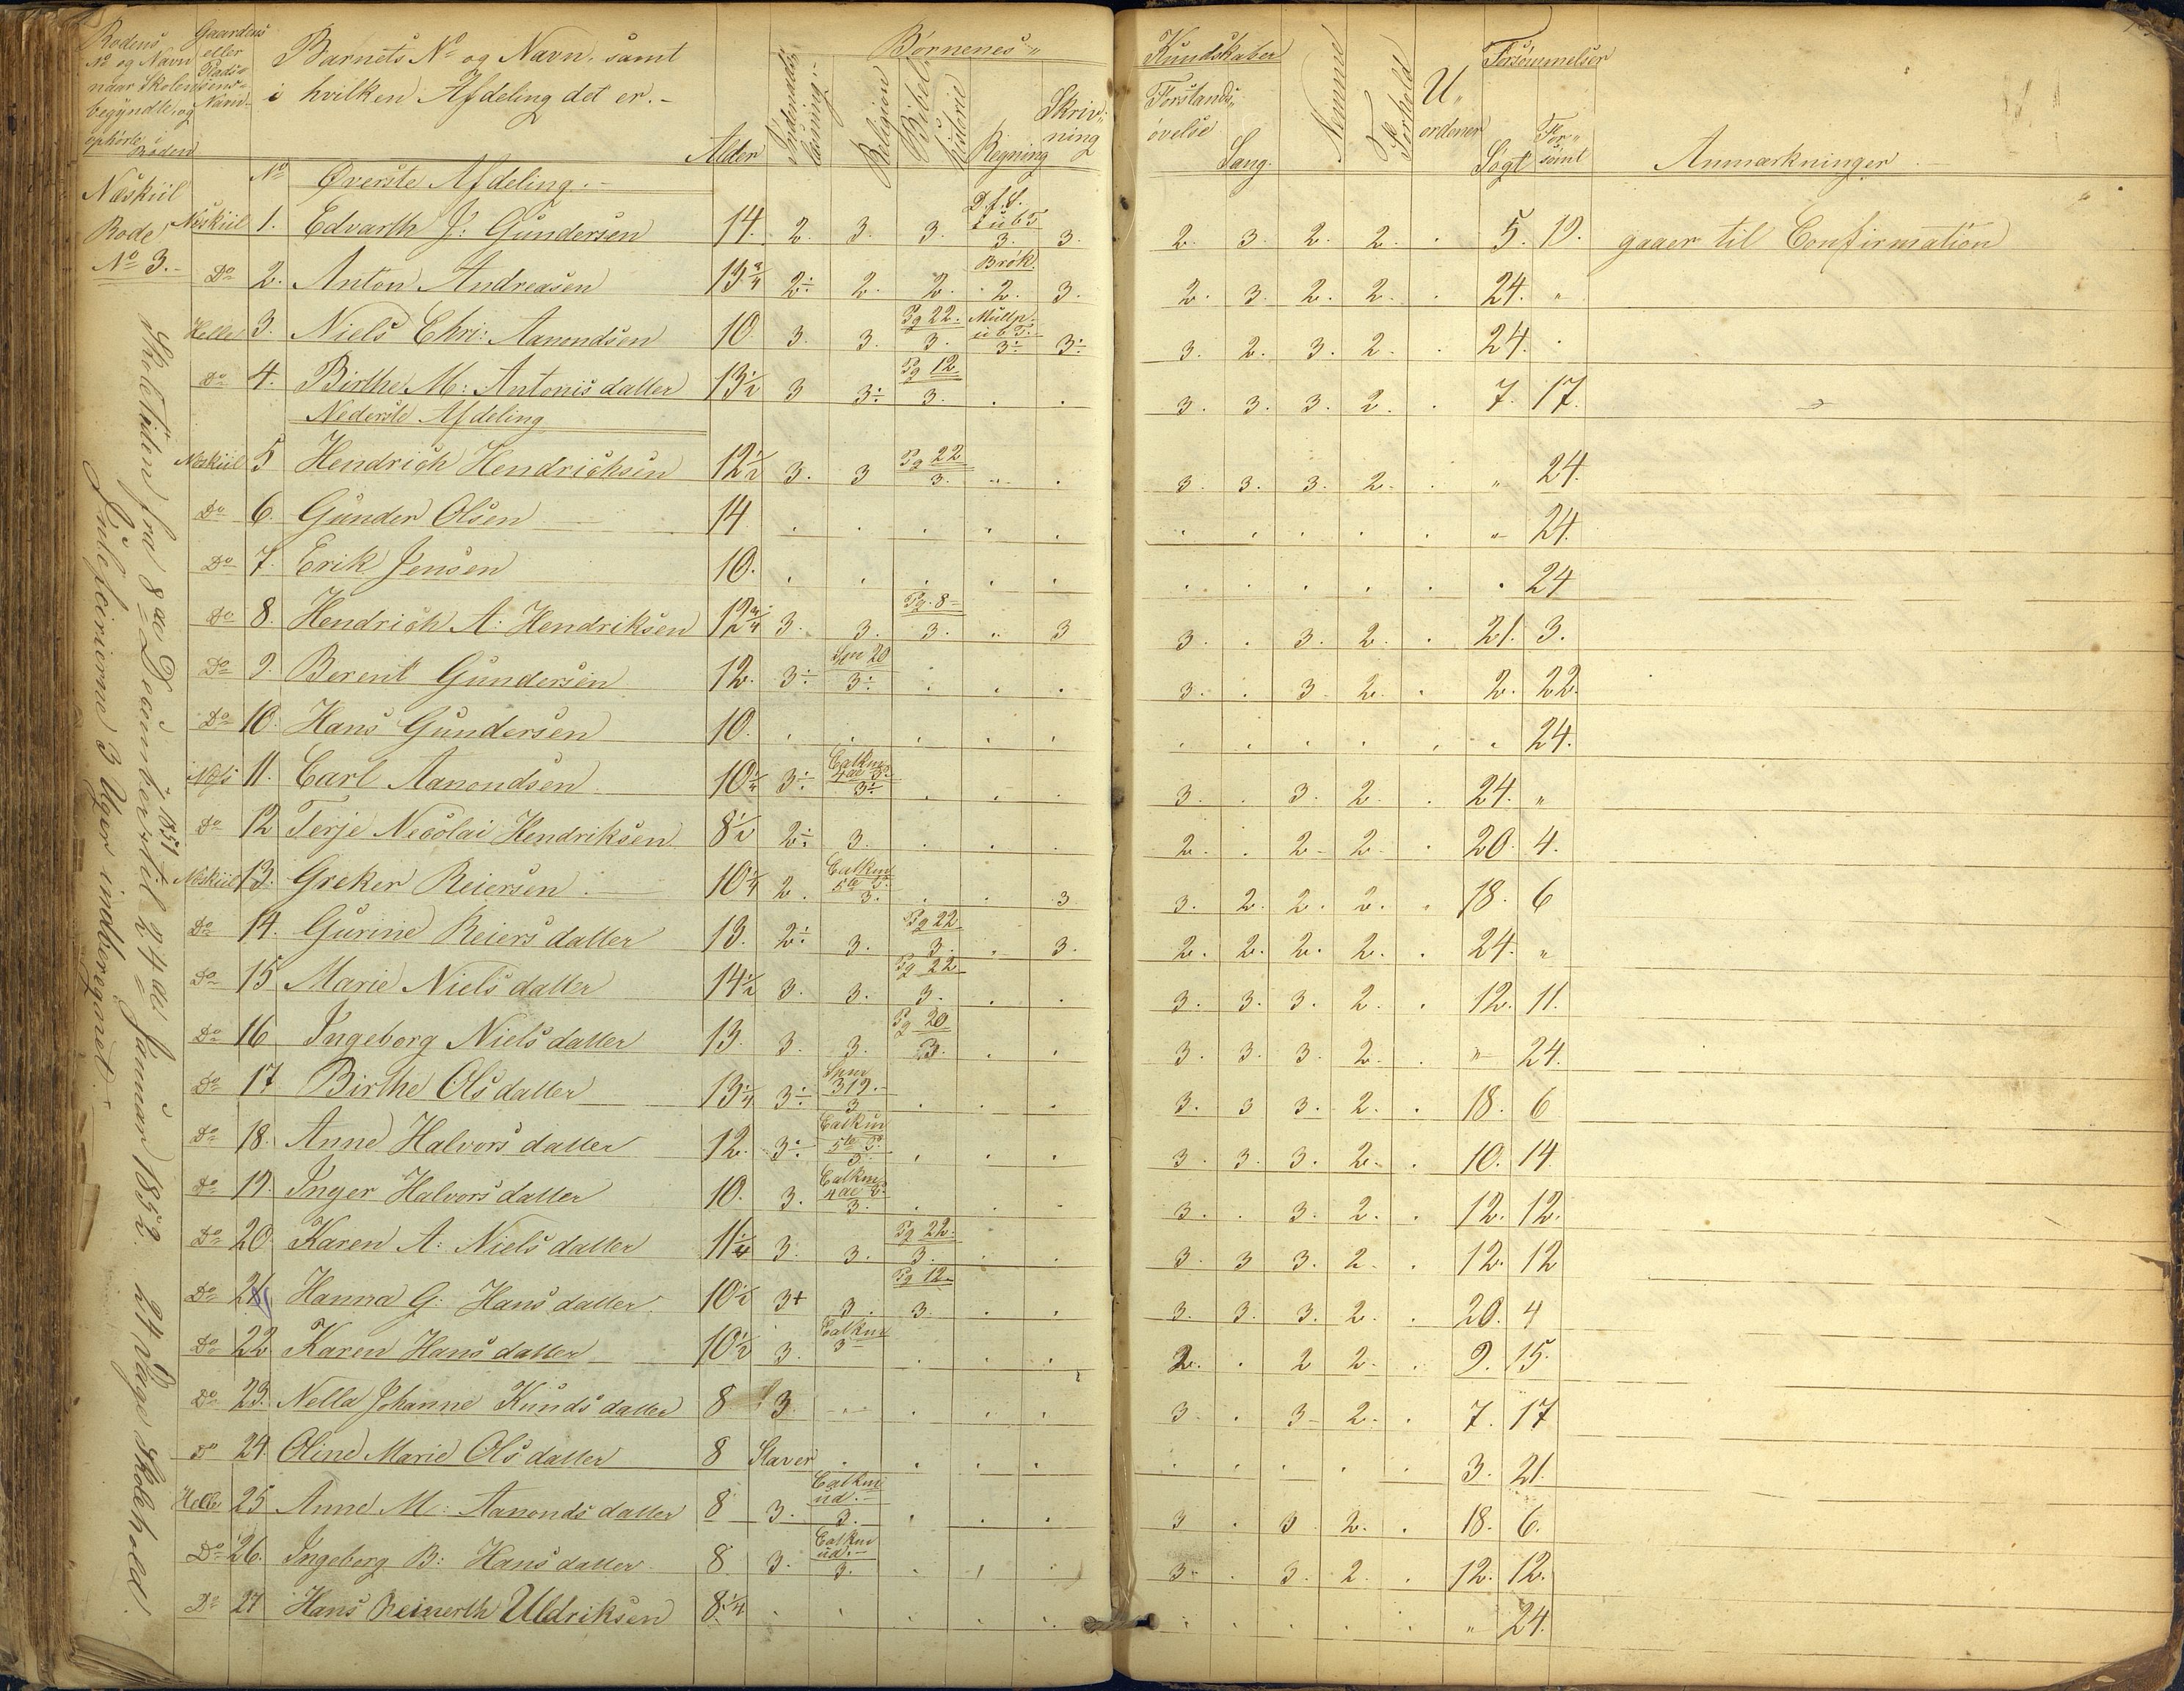 Rodens No og Navn naar Skolen begyndte, og ophørte i Roden
Gaardens eller Pladsens Navn
Barnets No og Navn, samt
i hvilken Afdeling det er.-
Alder
Indenadslæsning.-
Børnenes"
Religion
Bibelhistorie
Regning
Skrivning
Kundskaber
Forstandsøvelse
Sang.
Nemme
Forhold
U"ordener
Forsømmelser
Søgt
Forsømt
Anmærkninger
No Øverste Afdeling.-
Næskiil
Rode
No 3.-
D.f.S. i ub T
Næskiil 1. Edvarth J: Gundersen 14. 2. 3. 3. 3. 3. 2. 3. 2. 2. . 5. 19. gaaer til Confirmation
Brøk.
Do 2. Anton Andreasen 13 3/4 2÷ 2. 2. 2. 3. 2. 3. 2. 2. . 24. "
Pg 22. Multp. i ub T.
Helle 3. Niels Chri: Aanondsen 10. 3. 3. 3. 3÷ 3÷ 3. 2. 3. 2. . 24. .
Pg 12
Do 4. Birthe M: Antonisdatter 13 1/2 3 3÷ 3. . . 3. 3. 3. 2. . 7. 17.
Nederste Afdeling
Pg 22
Næskiil 5 Hendrich Hendrichsen 12 1/2 3. 3 3. " . 3. 3. 3. 2. . " 24.
Do 6. Gunder Olsen 14 . . . . . . . . . . " 24.
Do 7. Erik Jensen 10. . . . . . . . . . . . 24
Pg. 8
Do 8. Hendrich A: Hendriksen 12 3/4 3. 3. 3. " 3 3. . 3. 2. . 21. 3.
Do 9. Berent Gundersen 12. 3÷ 3÷ . . . 3. . 3 2. . 2. 22.
Do 10. Hans Gundersen 10. . . . . . . . . . . . 24.
Catkm 4de P.
Næs 11. Carl Aanondsen 10 1/4 3÷ 3÷ . . . 3. . 3. 2. . 24. "
Do 12 Terje Necolai Hendriksen 8 1/2 2÷ 3. . . . 2. . 2. 2. . 20. 4.
Catkm 5te P.
Næskiil 13. Greker Reiersen 10 1/4 2. 3. . . 3 3. 2. 2. 2. . 18. 6
Pg 22
Do 14. Gurine Reiersdatter 13. 2÷ 3. 3. . 3. 2. 2. 2. 2. . 24. "
Pg 22
Do 15 Marie Nielsdatter 14 1/2 3. 3. 3. . . 3. 3. 3. 2. . 12. 11.
Pg 20
Do 16 Ingeborg Nielsdatter 13. 3. 3. 3. . . 3. 3. 3. 2. . " 24.
319.
Do 17 Birthe Olsdatter 13 1/4 3÷ 3 . . . 3. 3 3. 2. . 18. 6
Catkm 5te P.
Do 18. Anne Halvorsdatter 12. 3÷ 3. . . . 3. 3. 3. 2. . 10. 14
Catkm 4de P.
Do 19. Inger Halvorsdatter 10. 3. 3. . . . 3. . 3. 2. . 12. 12.
Pg 22.
Do 20 Karen A: Nielsdatter 11 1/4 3. 3. 3. . . 3. 3 3. 2. . 12. 12
Pg 12
Do 21 Hanna G: Hansdatter 10 1/2 3+ 3. 3. . . 3. 3. 3. 2. . 20. 4
Catkm
Do 22 Karen Hansdatter 10 1/2 3. 3 . . . 2. . 2 2. . 9. 15.
Do 23. Nella Johanne Knudsdatter 8 3 . . . . 3. . 3 2. . 7. 17
Do 24. Oline Marie Olsdatter 8 Staver . . . . . . . . . 3. 21.
Catkm ud.-
Helle 25 Anne M: Aanondsdatter 8 3. 3. . . . 3 . 3 2. . 18. 6.
Catkm ud.-
Do 26. Ingeborg B: Hansdatter 8 3. 3. . . . 3. . 3. 2. . 12. 12.
Do 27 Hans Reinerth Uldriksen 8 1/4 . . . . . . . . . . " 24.
Skoletiden fra 8de December 1851 til 24de Januar 1852. 24 Dage Skolehold.
Juleferierne 3 Uger indberegnet.-